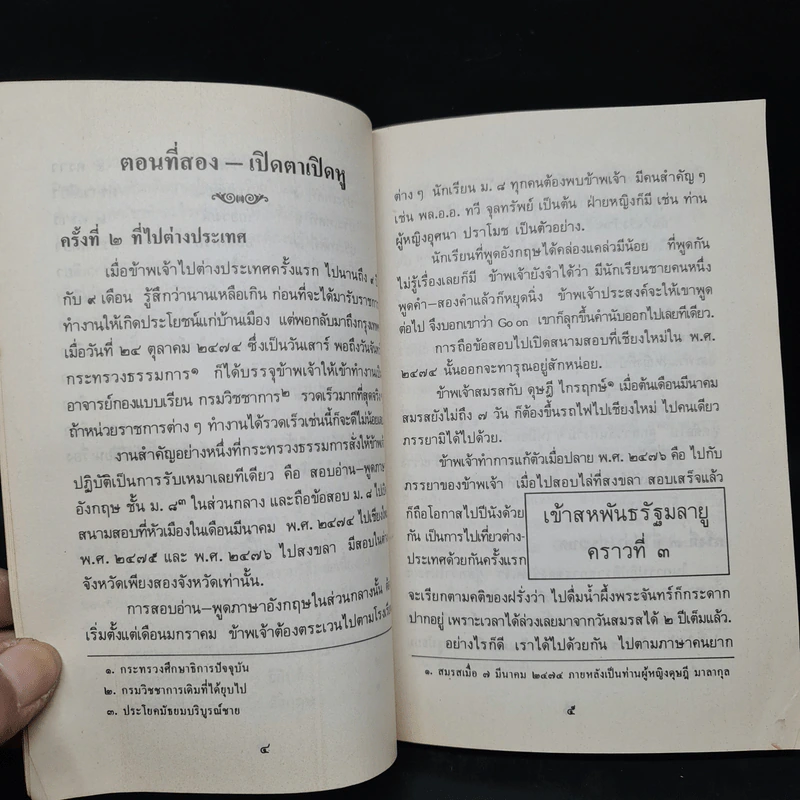 ตอนที่สอง – เปิดตาเปิดหู
ครั้งที่ ๒ ที่ไปต่างประเทศ
เมื่อข้าพเจ้าไปต่างประเทศครั้งแรก ไปนานถึง ๙
กับ ๙ เดือน รู้สึกว่านานเหลือเกิน ก่อนที่จะได้มารับราชการ
ทำงานให้เกิดประโยชน์แก่บ้านเมือง แต่พอกลับมาถึงกรุงเทพ
เมื่อวันที่ ๒๔ ตุลาคม ๒๔๗๔ ซึ่งเป็นวันเสาร์ พอถึงวันจันทร์
กระทรวงธรรมการ๑ ก็ได้บรรจุข้าพเจ้าให้เข้าทำงานเป็น
อาจารย์กองแบบเรียน กรมวิชชาการ๒ รวดเร็วมากที่สุดจริง
ถ้าหน่วยราชการต่าง ๆ ทำงานได้รวดเร็วเช่นนี้ก็จะดีไม่น้อยเลย
งานสำคัญอย่างหนึ่งที่กระทรวงธรรมการสั่งให้ข้าพเจ้า
ปฏิบัติเป็นการรับเหมาเลยทีเดียว คือ สอบอ่าน–พูดภาษา
อังกฤษ ชั้น ม. ๘๓ ในส่วนกลาง และถือข้อสอบ ม. ๘ ไปเปิด
สนามสอบที่หัวเมืองในเดือนมีนาคม พ.ศ. ๒๔๗๔ ไปเชียงใหม่
พ.ศ. ๒๔๗๕ และ พ.ศ. ๒๔๗๖ ไปสงขลา มีสอบในต่าง
จังหวัดเพียงสองจังหวัดเท่านั้น.
การสอบอ่าน–พูดภาษาอังกฤษในส่วนกลางนั้น
เริ่มตั้งแต่เดือนมกราคม ข้าพเจ้าต้องตระเวนไปตามโรงเรียน
๑. กระทรวงศึกษาธิการปัจจุบัน
๒. กรมวิชชาการเดิมที่ได้ยุบไป
๓. ประโยคมัธยมบริบูรณ์ชาย
๔
ต่าง ๆ นักเรียน ม. ๘ ทุกคนต้องพบข้าพเจ้า มีคนสำคัญ ๆ
เช่น พล.อ.อ. ทวี จุลทรัพย์ เป็นต้น ฝ่ายหญิงก็มี เช่น ท่าน
ผู้หญิงอุศนา ปราโมช เป็นตัวอย่าง.
นักเรียนที่พูดอังกฤษได้คล่องแคล่วมีน้อย ที่พูดกัน
ไม่รู้เรื่องเลยก็มี ข้าพเจ้ายังจำได้ว่า มีนักเรียนชายคนหนึ่ง
พูดคำ–สองคำแล้วก็หยุดนิ่ง ข้าพเจ้าประสงค์จะให้เขาพูด
ต่อไป จึงบอกเขาว่า Go on เขาก็ลุกขึ้นคำนับออกไปเลยทีเดียว.
การถือข้อสอบไปเปิดสนามสอบที่เชียงใหม่ใน พ.ศ.
๒๔๗๔ นั้นออกจะทารุณอยู่สักหน่อย.
ข้าพเจ้าสมรสกับ ดุษฎี ไกรฤกษ์๑ เมื่อต้นเดือนมีนาคม
สมรสยังไม่ถึง ๗ วัน ก็ต้องขึ้นรถไฟไปเชียงใหม่ ไปคนเดียว
ภรรยามิได้ไปด้วย.
ข้าพเจ้าทำการแก้ตัวเมื่อปลาย พ.ศ. ๒๔๗๖ คือ ไปกับ
ภรรยาของข้าพเจ้า เมื่อไปสอบไล่ที่สงขลา สอบเสร็จแล้ว
ก็ถือโอกาสไปปีนังด้วย
กัน เป็นการไปเที่ยวต่าง-
ประเทศด้วยกันครั้งแรก
เข้าสหพันธรัฐมลายู
คราวที่ ๓
จะเรียกตามคติของฝรั่งว่า ไปดื่มน้ำผึ้งพระจันทร์ก็กระดาก
ปากอยู่ เพราะเวลาได้ล่วงเลยมาจากวันสมรสได้ ๒ ปีเต็มแล้ว.
อย่างไรก็ดี เราได้ไปด้วยกัน ไปตามภาษาคนยาก
๑. สมรสเมื่อ ๗ มีนาคม ๒๔๗๔ ภายหลังเป็นท่านผู้หญิงดุษฎี มาลากุล
๕